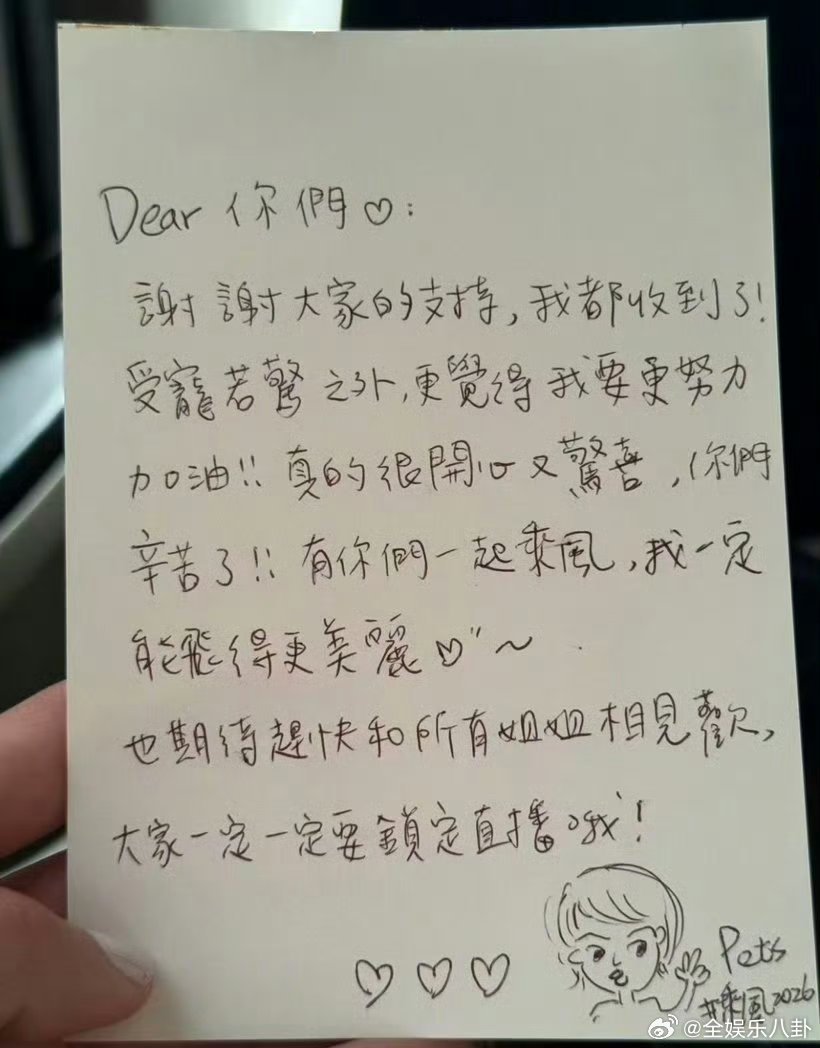 Dear 你們♡:
謝謝大家的支持,我都收到了!
受寵若驚之外,更覺得我要更努力
加油!! 真的很開心又驚喜,你們
辛苦了!! 有你們一起乘風,我一定
能飛得更美麗♡〃~
也期待趕快和所有姐姐相見歡,
大家一定一定要鎖定直播哦!
♡♡♡
Pets
#乘風2026
@全娱乐八卦